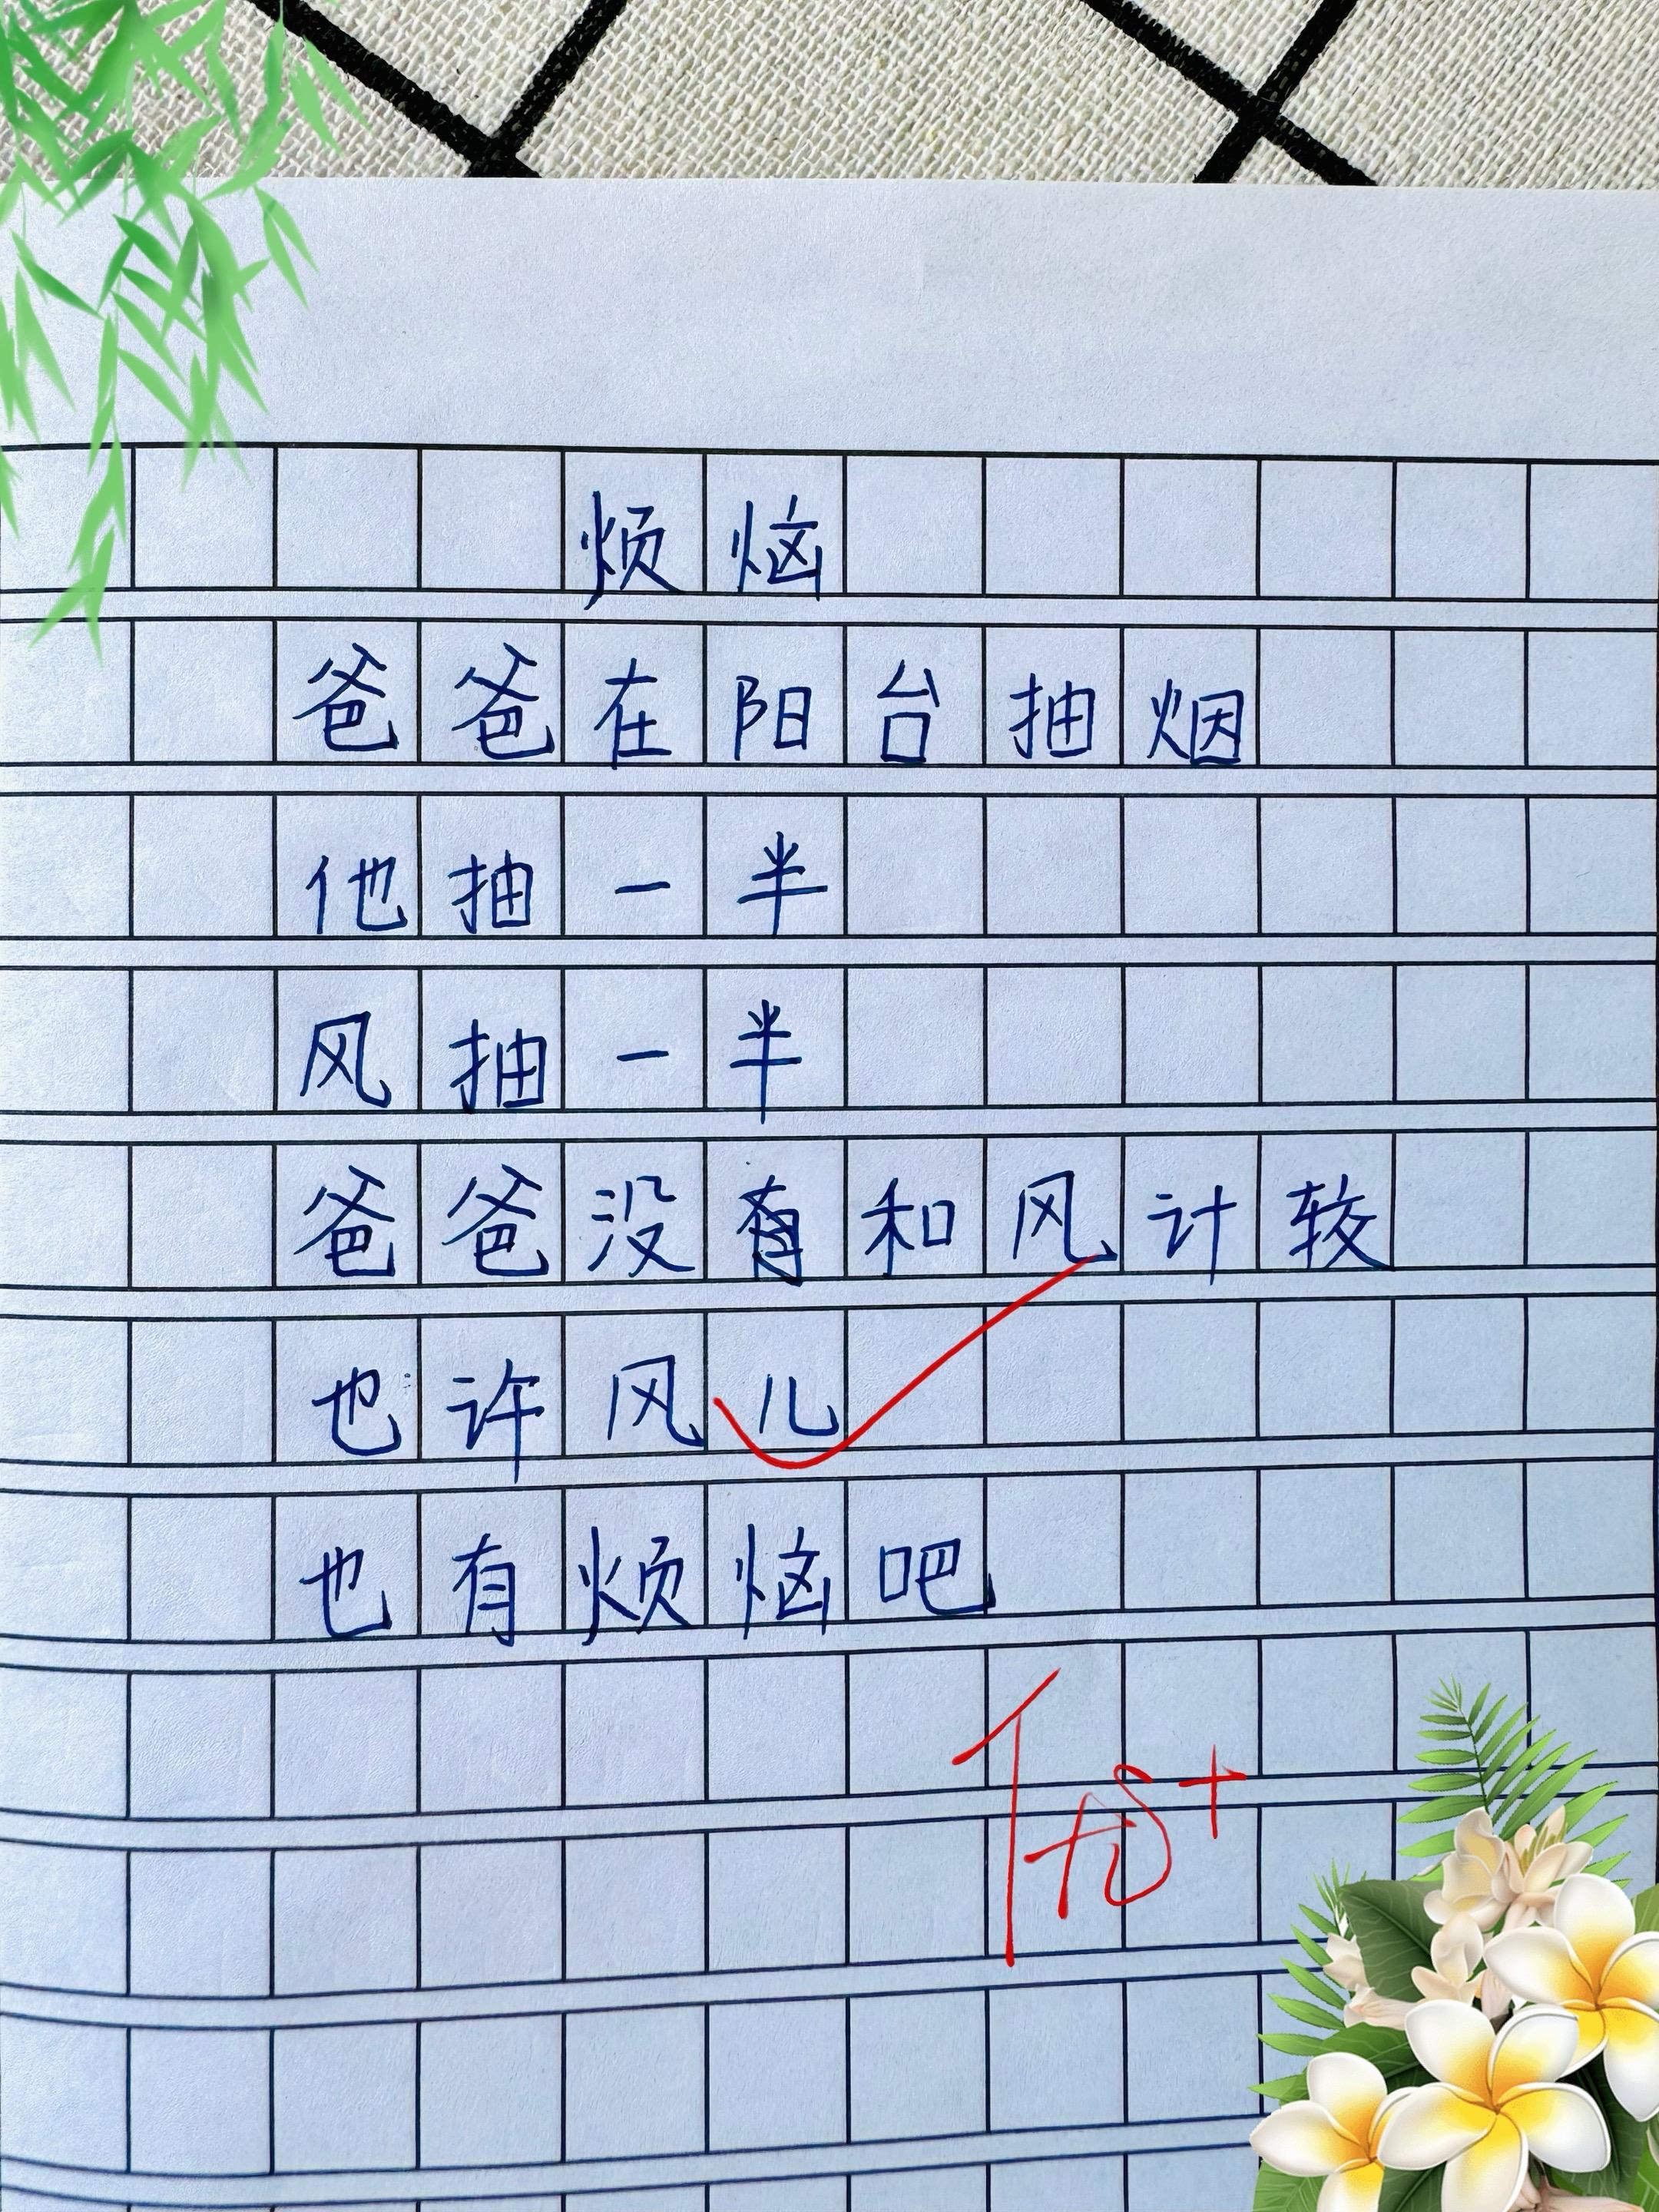 烦恼
爸爸在阳台抽烟
他抽一半
风抽一半
爸爸没有和风计较
也许风儿
也有烦恼吧
优+